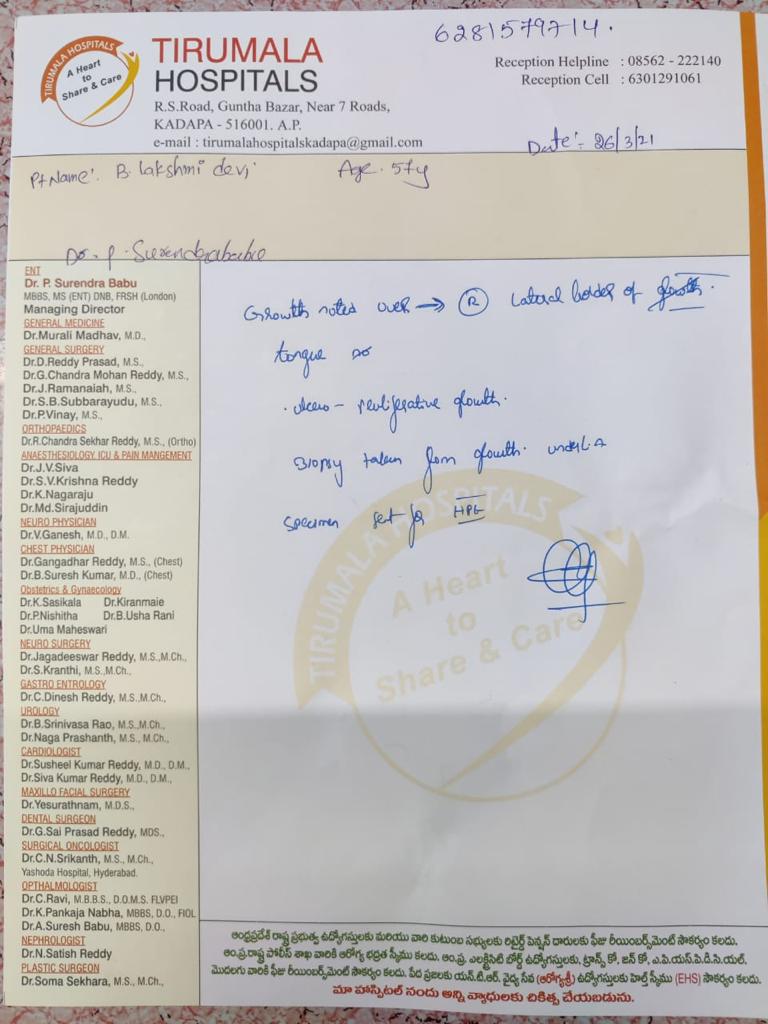 6281579714.
TIRUMALA HOSPITALS
A Heart
to
Share & Care
TIRUMALA
HOSPITALS
R.S.Road, Guntha Bazar, Near 7 Roads,
KADAPA - 516001. A.P.
e-mail : tirumalahospitalskadapa@gmail.com
Reception Helpline : 08562 - 222140
Reception Cell : 6301291061
Date:- 26/3/21
Pt Name: B. lakshmi devi Age. 57y
Dr. P. Surendrababu
ENT
Dr. P. Surendra Babu
MBBS, MS (ENT) DNB, FRSH (London)
Managing Director
GENERAL MEDICINE
Dr.Murali Madhav, M.D.,
GENERAL SURGERY
Dr.D.Reddy Prasad, M.S.,
Dr.G.Chandra Mohan Reddy, M.S.,
Dr.J.Ramanaiah, M.S.,
Dr.S.B.Subbarayudu, M.S.,
Dr.P.Vinay, M.S.,
ORTHOPAEDICS
Dr.R.Chandra Sekhar Reddy, M.S., (Ortho)
ANAESTHESIOLOGY, ICU & PAIN MANGEMENT
Dr.J.V.Siva
Dr.S.V.Krishna Reddy
Dr.K.Nagaraju
Dr.Md.Sirajuddin
NEURO PHYSICIAN
Dr.V.Ganesh, M.D., D.M.
CHEST PHYSICIAN
Dr.Gangadhar Reddy, M.S., (Chest)
Dr.B.Suresh Kumar, M.D., (Chest)
Obstetrics & Gynaecology
Dr.K.Sasikala Dr.Kiranmaie
Dr.P.Nishitha Dr.B.Usha Rani
Dr.Uma Maheswari
NEURO SURGERY
Dr.Jagadeeswar Reddy, M.S.,M.Ch.,
Dr.S.Kranthi, M.S.,M.Ch.,
GASTRO ENTROLOGY
Dr.C.Dinesh Reddy, M.S.,M.Ch.,
UROLOGY
Dr.B.Srinivasa Rao, M.S.,M.Ch.,
Dr.Naga Prashanth, M.S., M.Ch.,
CARDIOLOGIST
Dr.Susheel Kumar Reddy, M.D., D.M.,
Dr.Siva Kumar Reddy, M.D., D.M.,
MAXILLO FACIAL SURGERY
Dr.Yesurathnam, M.D.S.,
DENTAL SURGEON
Dr.G.Sai Prasad Reddy, MDS.,
SURGICAL ONCOLOGIST
Dr.C.N.Srikanth, M.S., M.Ch.,
Yashoda Hospital, Hyderabad.
OPTHALMOLOGIST
Dr.C.Ravi, M.B.B.S., D.O.M.S. FLVPEI
Dr.K.Pankaja Nabha, MBBS, D.O., FIOL
Dr.A.Suresh Babu, MBBS, D.O.,
NEPHROLOGIST
Dr.N.Satish Reddy
PLASTIC SURGEON
Dr.Soma Sekhara, M.S., M.Ch.,
Growth noted over → R Lateral border of growth.
tongue
ulcero - proliferative growth.
Biopsy taken from growth. under LA
Specimen sent for HPE
TIRUMALA HOSPITALS
A Heart
to
Share & Care
ఆంధ్రప్రదేశ్ రాష్ట్ర ప్రభుత్వ ఉద్యోగస్తులకు మరియు వారి కుటుంబ సభ్యులకు రిటైర్డ్ పెన్షన్ దారులకు ఫీజు రీయింబర్స్‌మెంట్ సౌకర్యం కలదు.
ఆం.ప్ర.రాష్ట్ర పోలీస్ శాఖ వారికి ఆరోగ్య భద్రత స్కీము కలదు. ఆం.ప్ర. ఎలక్ట్రిసిటి బోర్డ్ ఉద్యోగస్తులకు, ట్రాన్స్ కో, జన్ కో, ఎ.పి.యస్.పి.డి.సి.యల్.
మొదలగు వారికి ఫీజు రీయింబర్స్‌మెంట్ సౌకర్యం కలదు. పేద ప్రజలకు యన్.టి.ఆర్. వైద్య సేవ (ఆరోగ్యశ్రీ) ఉద్యోగస్తులకు హెల్త్ స్కీము (EHS) సౌకర్యం కలదు.
మా హాస్పిటల్ నందు అన్ని వ్యాధులకు చికిత్స చేయబడును.